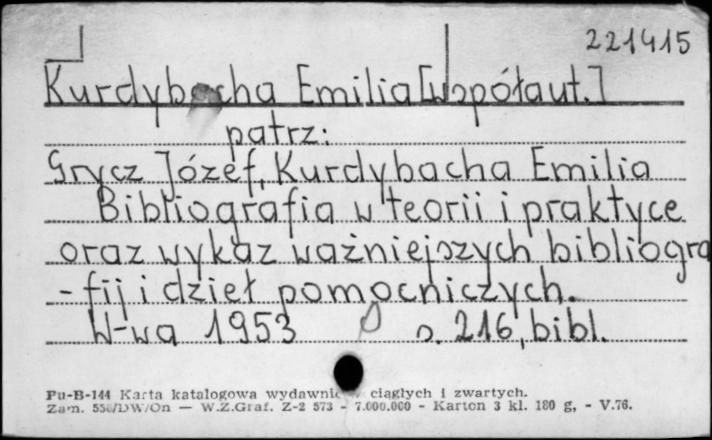 221415
Kurdybacha Emilia [współaut.]
patrz:
Grycz Józef, Kurdybacha Emilia
Bibliografia w teorii i praktyce
oraz wykaz ważniejszych bibliogra
-fij i dzieł pomocniczych.
W-wa 1953 s. 216, bibl.
Pu-B-144 Karta katalogowa wydawnic w ciągłych i zwartych.
Zam. /DW/On — W.Z.Graf. Z-2 573 - 7.000.000 - Karton 3 kl. 180 g, - V.76.